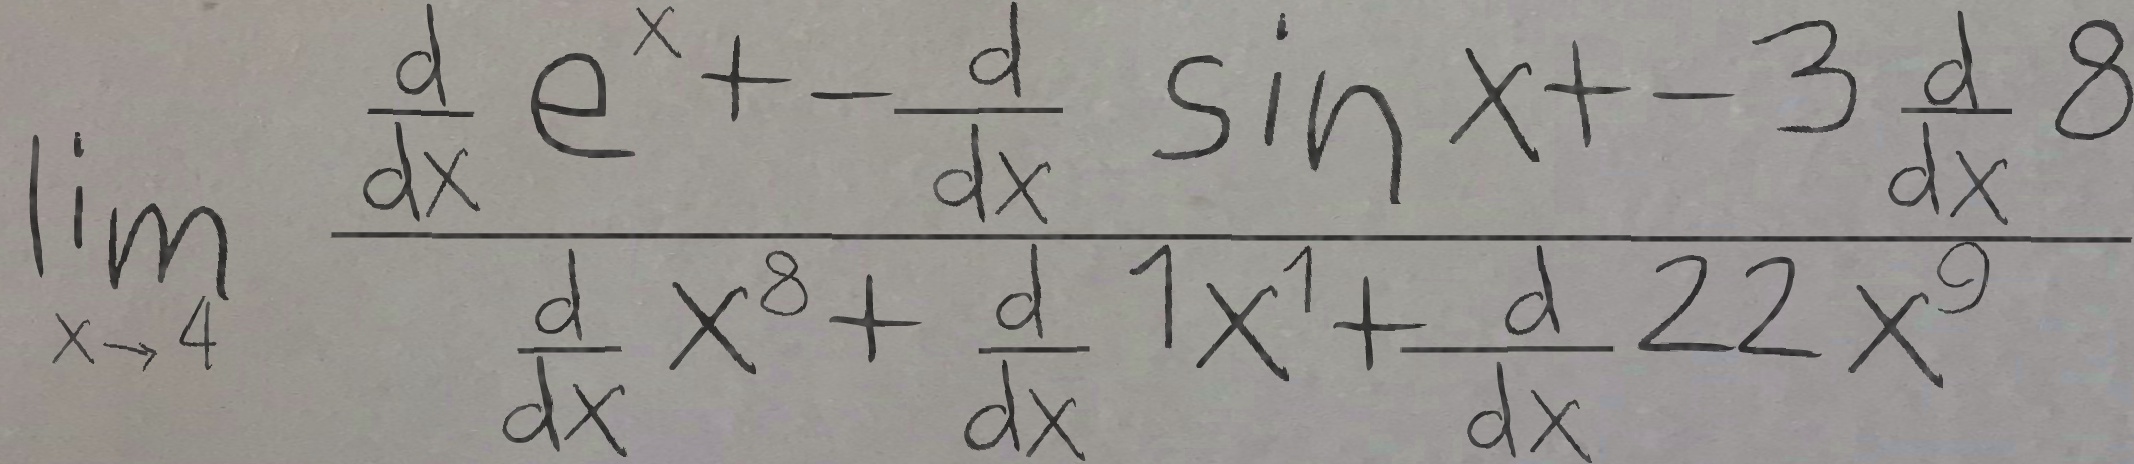 \lim_{x \to 4} \frac{\frac{d}{dx} e^{x} + -\frac{d}{dx} \sin x + -3 \frac{d}{dx} 8}{\frac{d}{dx} x^{8} + \frac{d}{dx} 1x^{1} + \frac{d}{dx} 22x^{9}}